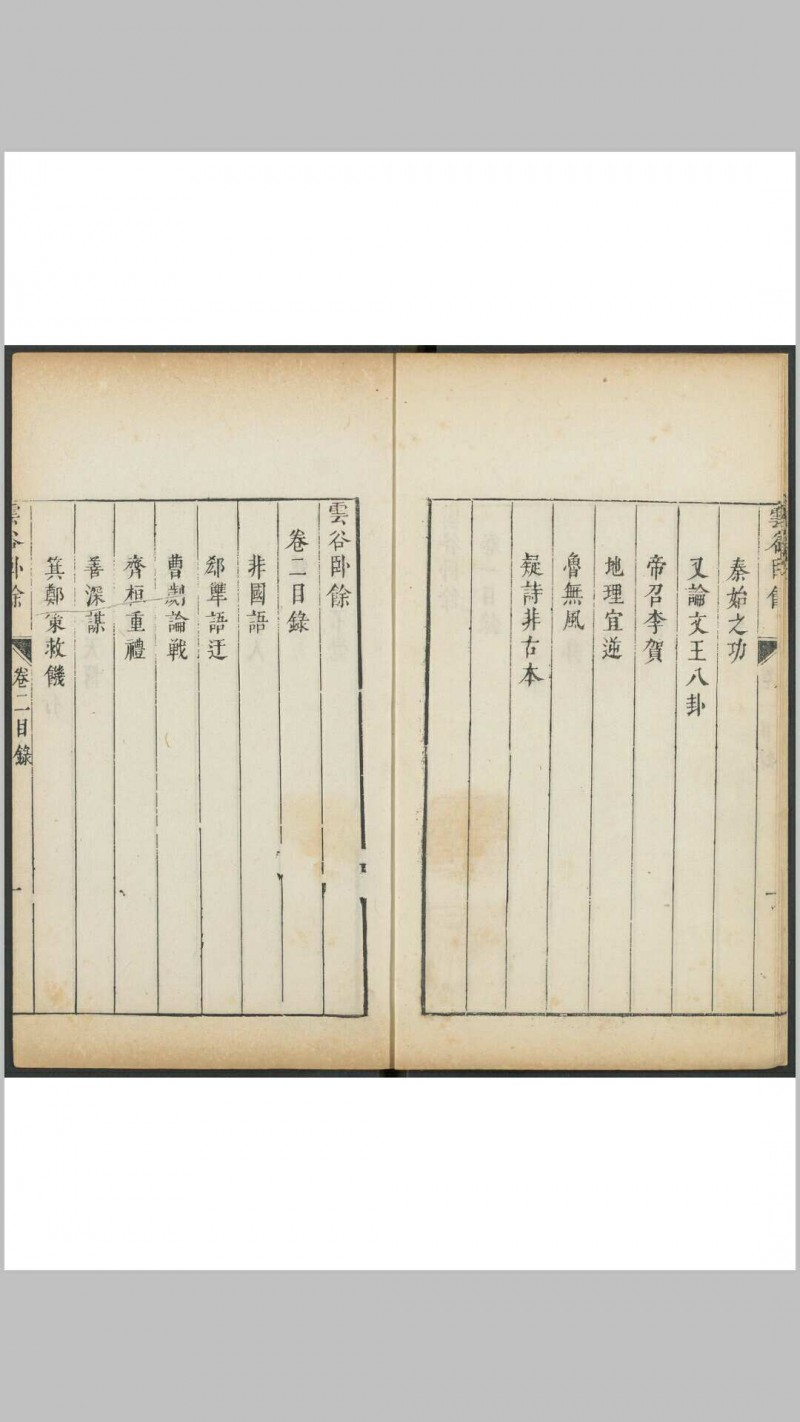 雲谷卧餘
秦始之功
又論文王八卦
帝召李賀
地理宜逆
魯無風
疑詩非古本
一
雲谷卧餘
卷二目錄
非國語
郤犫語迂
曹劌論戰
齊桓重禮
善深謀
箕鄭策救饑
雲谷卧餘
卷二目錄
一